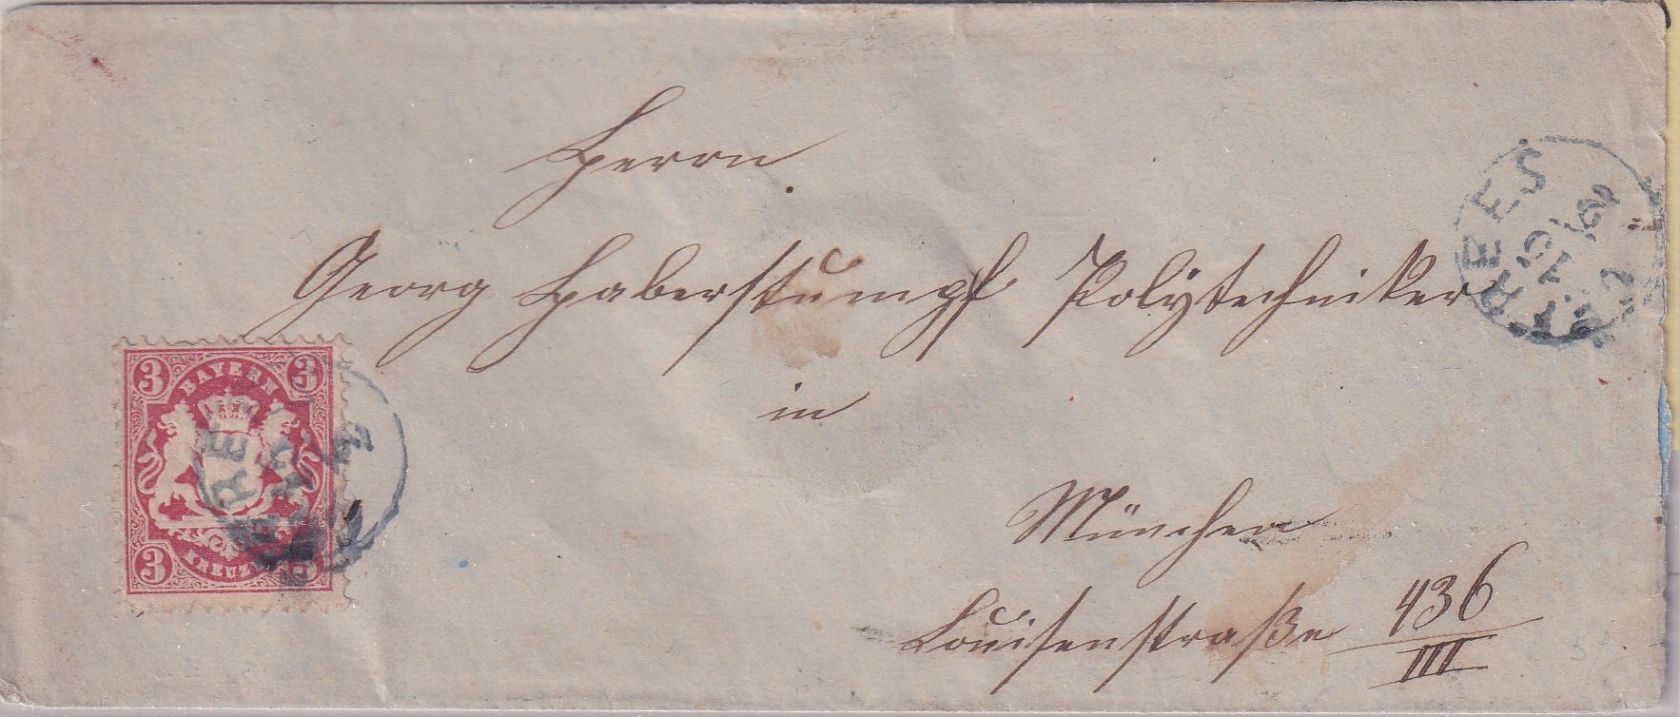 Herrn
Georg Haberstumpf Polytechniker
in
München
Louisenstraße 436
III
3 3
BAYERN
3
KREUZER